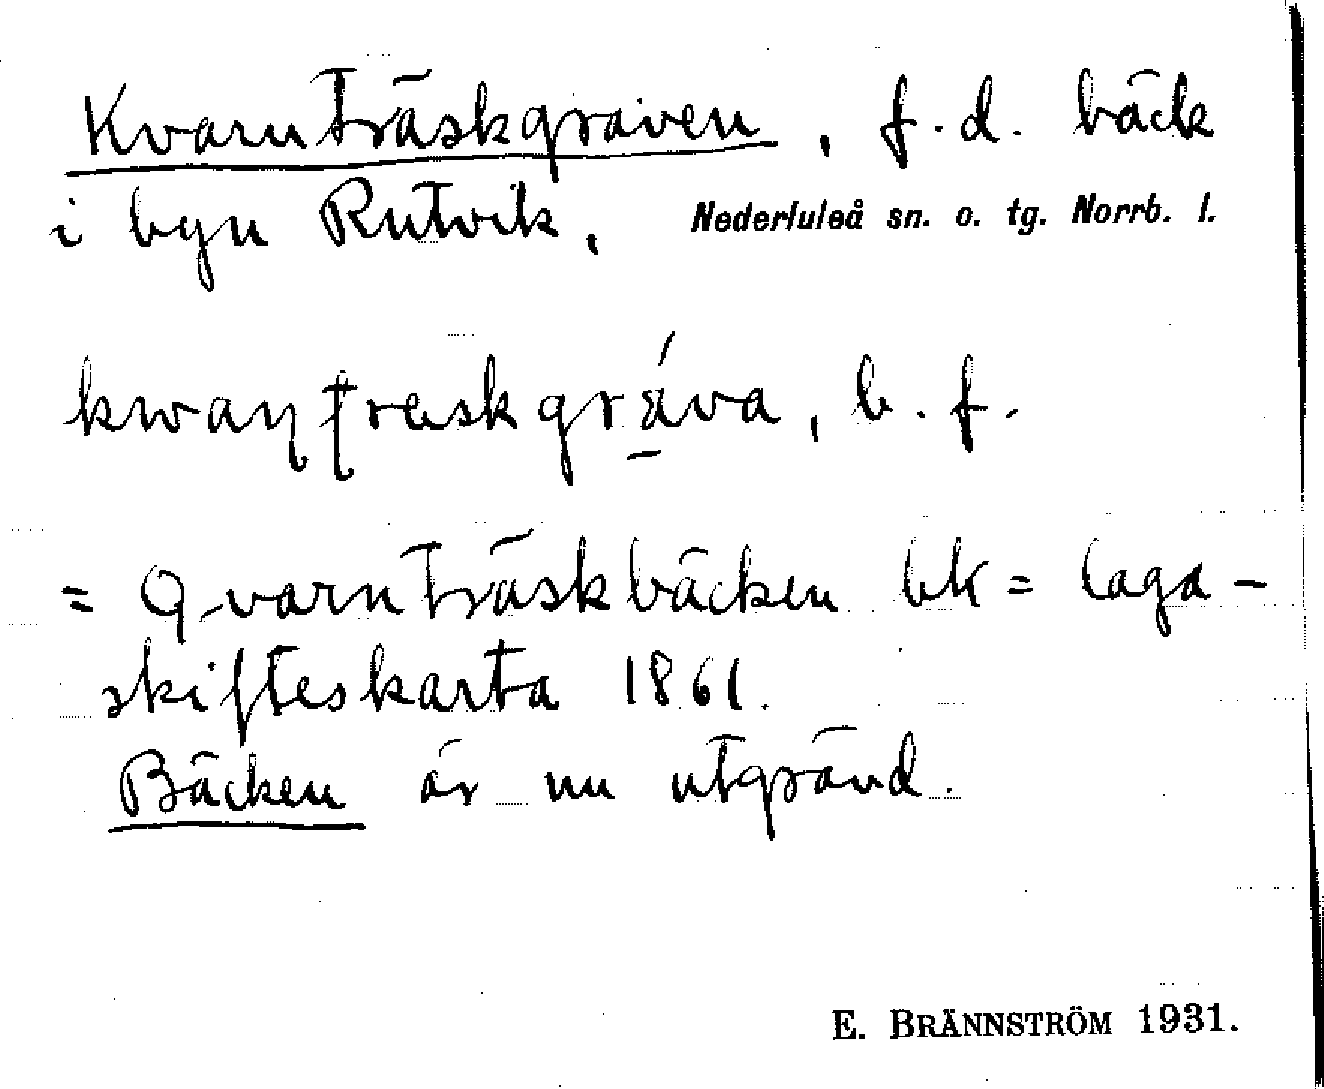 Kvarnträskgraven, f.d. bäck
i byn Rutvik, Nederluleå sn. o. tg. Norrb. l.
kwaɳʈræskgráva, b.f.
= Qvarnträskbäcken bk = laga-
skifteskarta 1861.
Bäcken är nu utgrävd.
E. BRÄNNSTRÖM 1931.